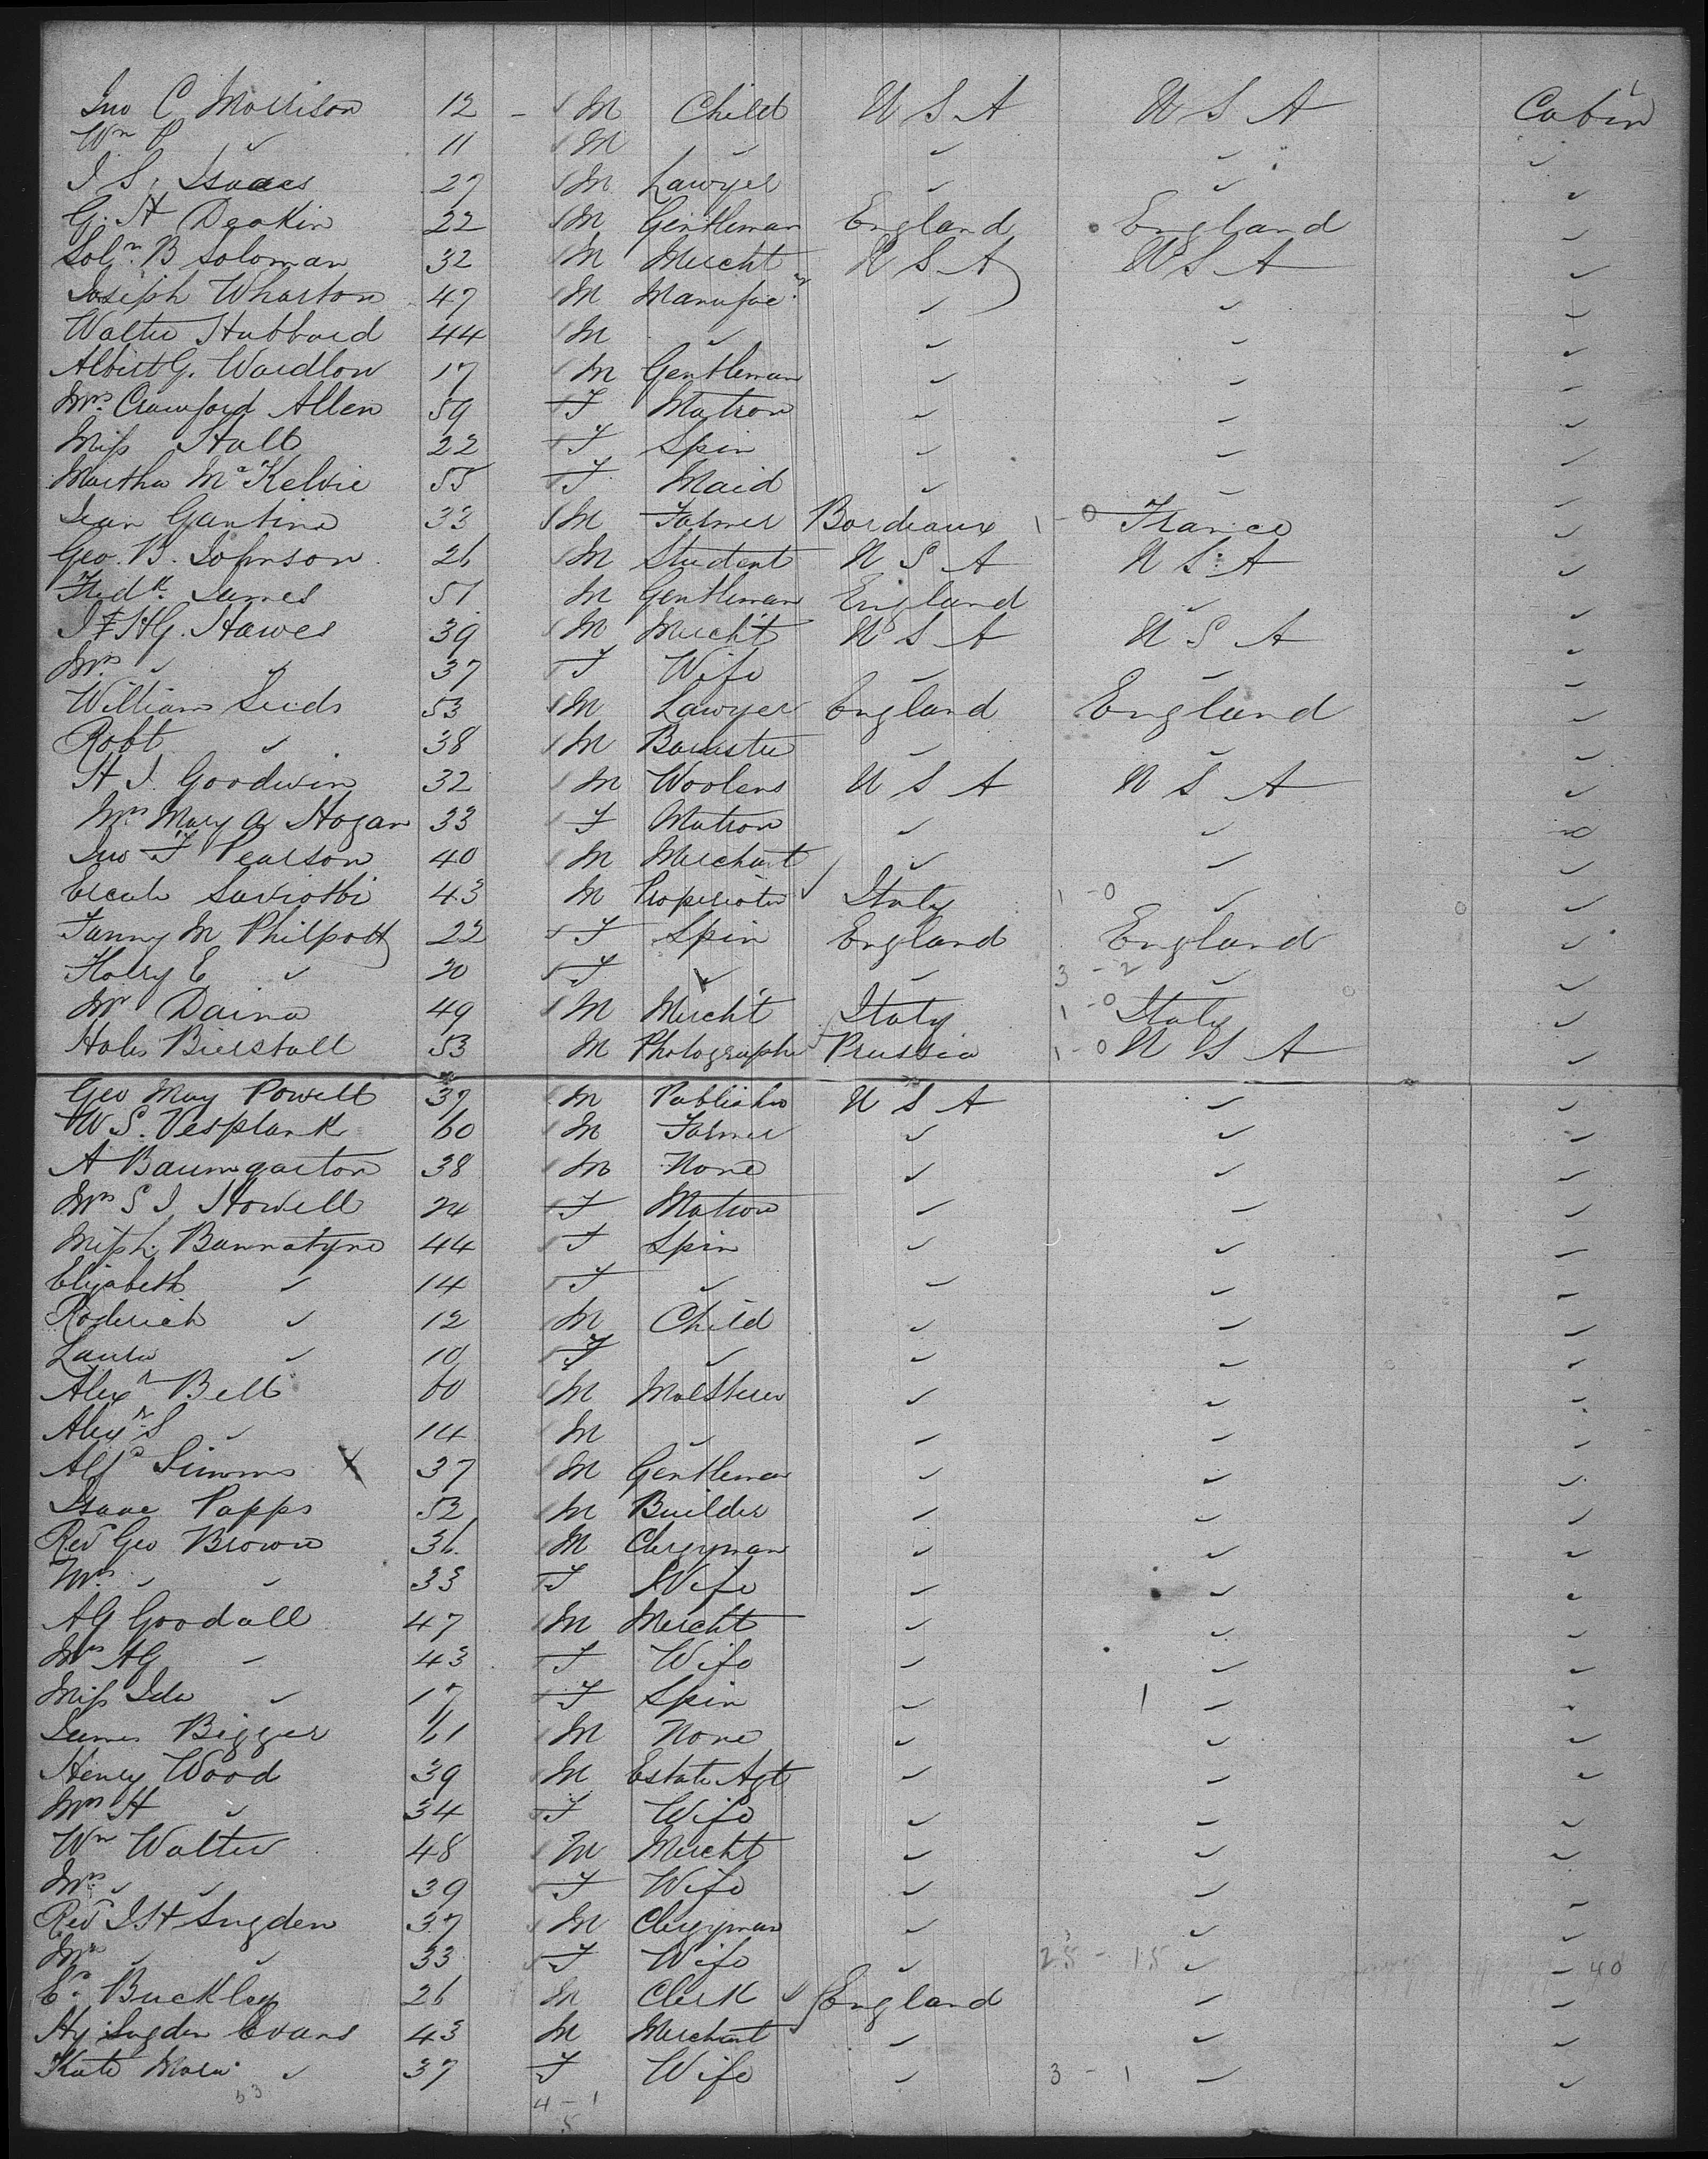 Jno C Morrison 12 - M Child U S A U S A Cabin
Wm P ✓ 11 M ✓ ✓ ✓ ✓
I S. Isaacs 27 M Lawyer ✓ ✓ ✓
G. H Deakin 22 M Gentleman England England ✓
Soln. B Soloman 32 M Mercht U S A U S A ✓
Joseph Wharton 47 M Manufacr ✓ ✓ ✓
Walter Hubbard 44 M ✓ ✓ ✓ ✓
Albert G. Wardlow 17 M Gentleman ✓ ✓ ✓
Mrs. Crawford Allen 59 F Matron ✓ ✓ ✓
Miss Hall 22 F Spin ✓ ✓ ✓
Martha Mc Kelvie 55 F Maid ✓ ✓ ✓
Jean Gantina 33 M Farmer Bordeaux 1 - 0 France ✓
Geo. B. Johnson 26 M Student U S A U S A ✓
Fredk. James 51 M Gentleman England ✓ ✓
Hawes 39 M Mercht U S A U S A ✓
Mrs. ✓ ✓ 37 F Wife ✓ ✓ ✓
William Leeds 53 M Lawyer England England ✓
Robt ✓ 38 M Barrister ✓ ✓ ✓
H J. Goodwin 32 M Woolens U S A U S A ✓
Mrs Mary A Hogan 33 F Matron ✓ ✓ ✓
Jno F Pearson 40 M Merchant ✓ ✓ ✓
Ercole 43 M Properietor ✓ Italy 1 - 0 ✓ ✓
Fanny M Philpott 22 F Spin England England ✓
Harry E ✓ 20 F ✓ ✓ 3 - 2 ✓ ✓
Mr Daina 49 M Mercht Italy 1 - 0 Italy ✓
Bierstall 53 M Photographer Prussia 1 - 0 U S A ✓
Geo May Powell 37 M Publisher U S A ✓ ✓
W S. Vesplank 60 M Farmer ✓ ✓ ✓
A Baumgarton 38 M None ✓ ✓ ✓
Mrs S J Howell 24 F Matron ✓ ✓ ✓
Bannatyne 44 F Spin ✓ ✓ ✓
Elizabeth ✓ 14 F ✓ ✓ ✓ ✓
Roderick ✓ 12 M Child ✓ ✓ ✓
Laura ✓ 10 F ✓ ✓ ✓ ✓
Alexr Bell 60 M Malsterer ✓ ✓ ✓
Alexr. S ✓ 14 M ✓ ✓ ✓ ✓
Alfd Simms X 37 M Gentleman ✓ ✓ ✓
Isaac Papps 52 M Builder ✓ ✓ ✓
Revd Geo Brown 36 M Clergyman ✓ ✓ ✓
Mrs. ✓ ✓ 33 F Wife ✓ ✓ ✓
A G Goodall 47 M Mercht ✓ ✓ ✓
Mrs A G ✓ 43 F Wife ✓ ✓ ✓
Miss Ida ✓ 17 F Spin ✓ 1 ✓ ✓
James Bigger 61 M None ✓ ✓ ✓
Henry Wood 39 M Estate Agt ✓ ✓ ✓
Mrs H ✓ 34 F Wife ✓ ✓ ✓
Wm Walter 48 M Mercht ✓ ✓ ✓
Mrs. ✓ ✓ 39 F Wife ✓ ✓ ✓
Revd J H Sugden 37 M Clergyman ✓ ✓ ✓
Mrs ✓ ✓ 33 F Wife ✓ 25 - 15 ✓ - 40
Ed. Buckley 26 M Clerk England ✓ ✓
Hy Sugden Evans 43 M Merchant ✓ ✓ ✓
Kate Maria ✓ 37 F Wife ✓ 3 - 1 ✓ ✓
53 4 - 1
5